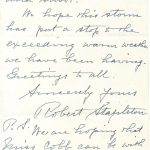 We hope this storm
has put a stop to the
exceeding warm weather
we have been having.
Greetings to all.
Sincerely Yours
Robert Stapleton
P.S. We are hoping that
Miss Cobb can be with